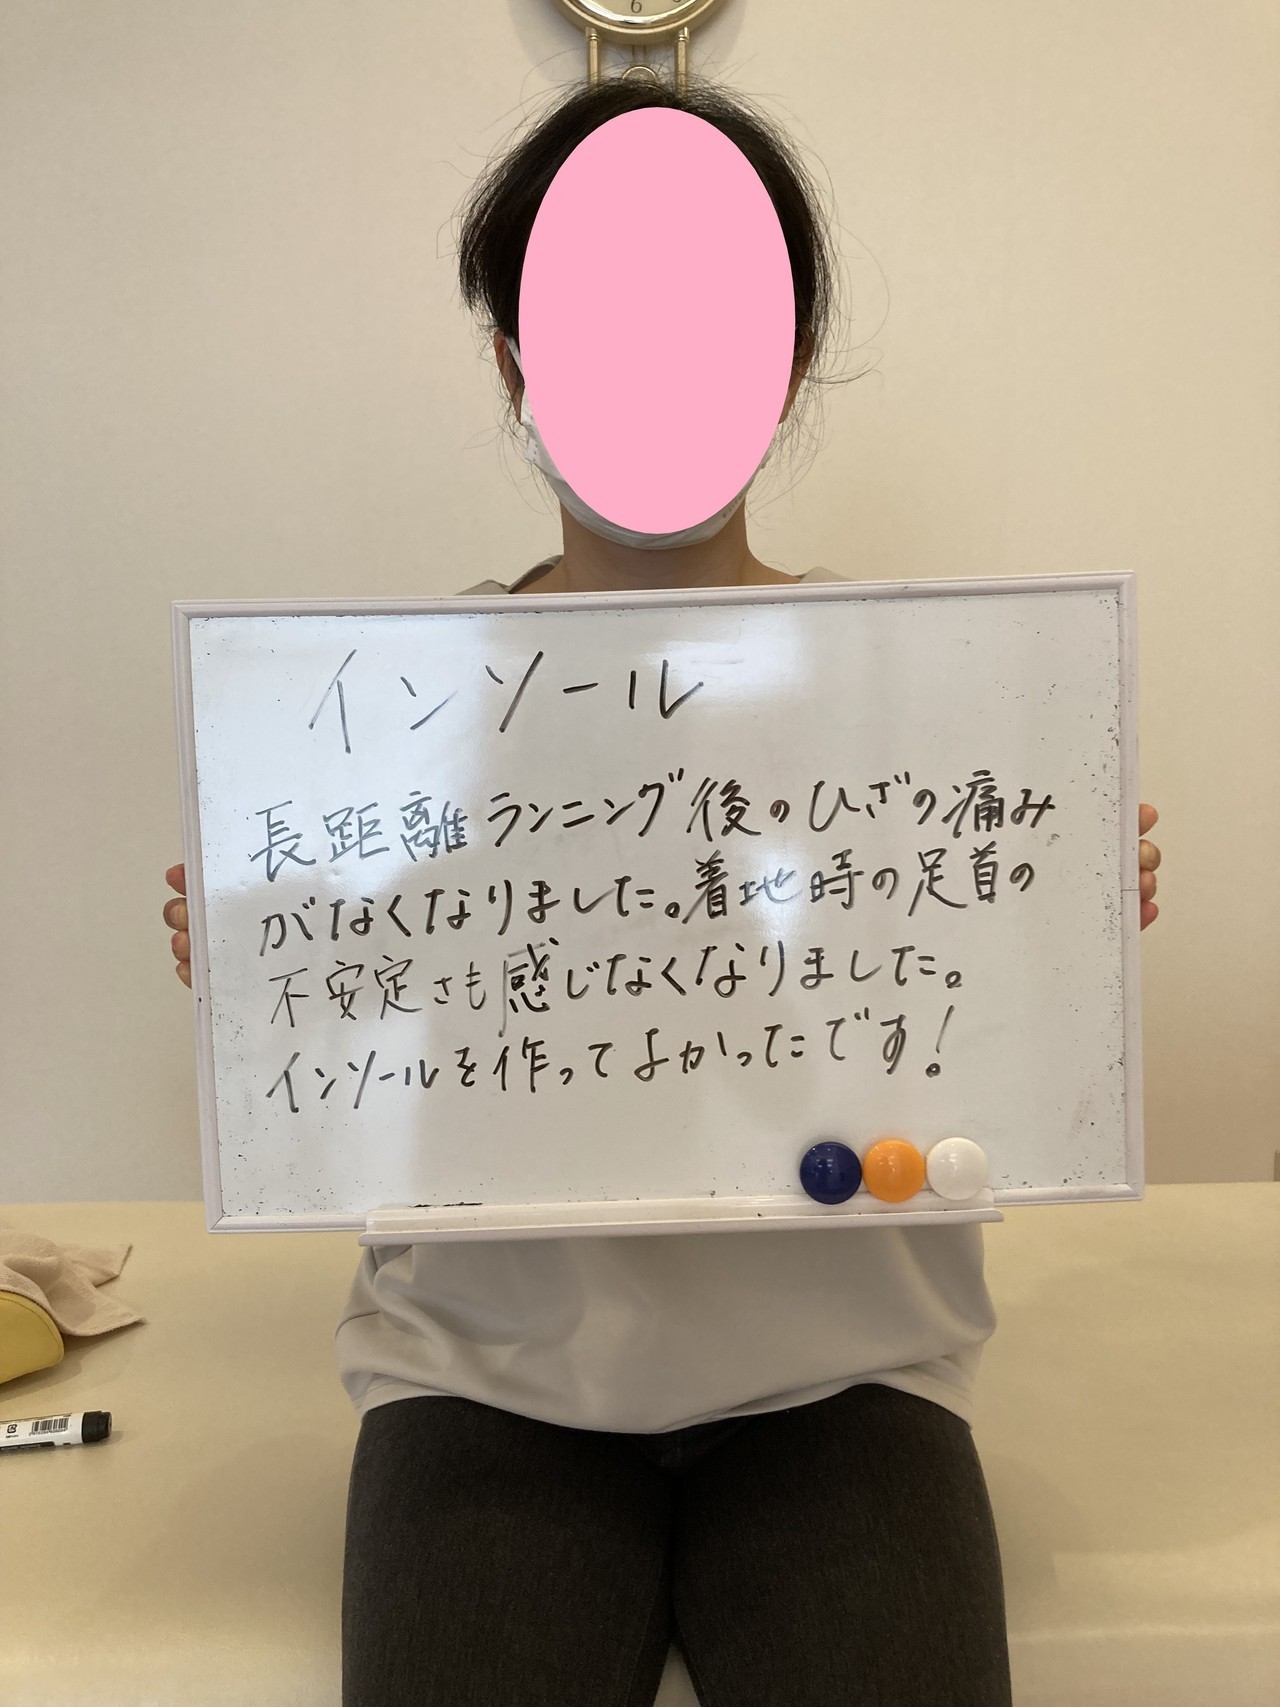 6
インソール
長距離ランニング後のひざの痛み
がなくなりました。着地時の足首の
不安定さも感じなくなりました。
インソールを作ってよかったです!